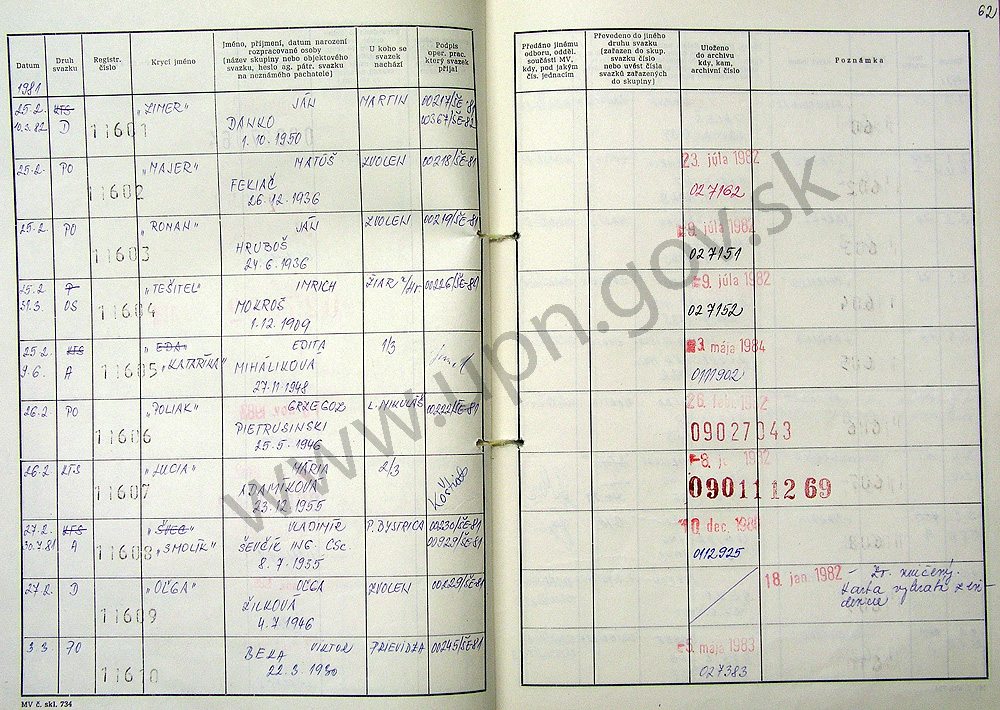 62
Datum
Druh svazku
Registr. číslo
Krycí jméno
Jméno, příjmení, datum narození rozpracované osoby (název skupiny nebo objektového svazku, heslo ag. pátr. svazku na neznámého pachatele)
U koho se svazek nachází
Podpis oper. prac. který svazek přijal
Předáno jinému odboru, odděl. součásti MV, kdy, pod jakým čís. jednacím
Převedeno do jiného druhu svazku (zařazen do skup. svazku číslo nebo uvést čísla svazků zařazených do skupiny)
Uloženo do archivu kdy, kam, archivní číslo
Poznámka
1981
25.2. KTS 11601 „ZIMER" JÁN MARTIN 00217/ŠE-81
10.3.82 D DANKO 00367/ŠE-82
1.10.1950
25.2. PO 11602 „MAJER" MATÚŠ ZVOLEN 00218/ŠE-81 23. júla 1982
FEKIAČ 027162
26.12.1936
25.2 PO 11603 „ROMAN" JÁN ZVOLEN 00219/ŠE-81 9. júla 1982
HRUBOŠ 027151
24.6.1936
25.2. 11604 „TEŠITEL" IMRICH ŽIAR n/Hr 00226/ŠE-81 9. júla 1982
31.3. OS MOKROŠ 027152
1.12.1909
25.2. KTS 11605 „EDA" EDITA 1/3 3. mája 1984
9.6. A „KATARÍNA" MIHÁLIKOVÁ 0111902
27.11.1948
26.2. PO 11606 „POLIAK" GRZEGOZ L. MIKULÁŠ 00222/ŠE-81
PIETRUSINSKI 09027043
25.5.1946
26.2. KTS 11607 „LUCIA" MÁRIA 2/3
ADAMÍKOVÁ 090111269
23.12.1955
27.2. KTS 11608 „ŠVEC" VLADIMÍR P. BYSTRICA 00230/ŠE-81
30.7.81 A „SMOLÍK" ŠEVČÍK ING. CSc. 00929/ŠE-81 0112925
8.7.1935
27.2. D 11609 „OĽGA" OĽGA ZVOLEN 00229/ŠE-81 18. jan. 1982 – Zv. zničený.
ŽILKOVÁ Karta vybratá z evi
4.7.1946 dencie
3.3. PO 11610 VIKTOR PRIEVIDZA 00245/ŠE-81 5. mája 1983
BEKA 027383
22.3.1930
MV č. skl. 734
www.upn.gov.sk